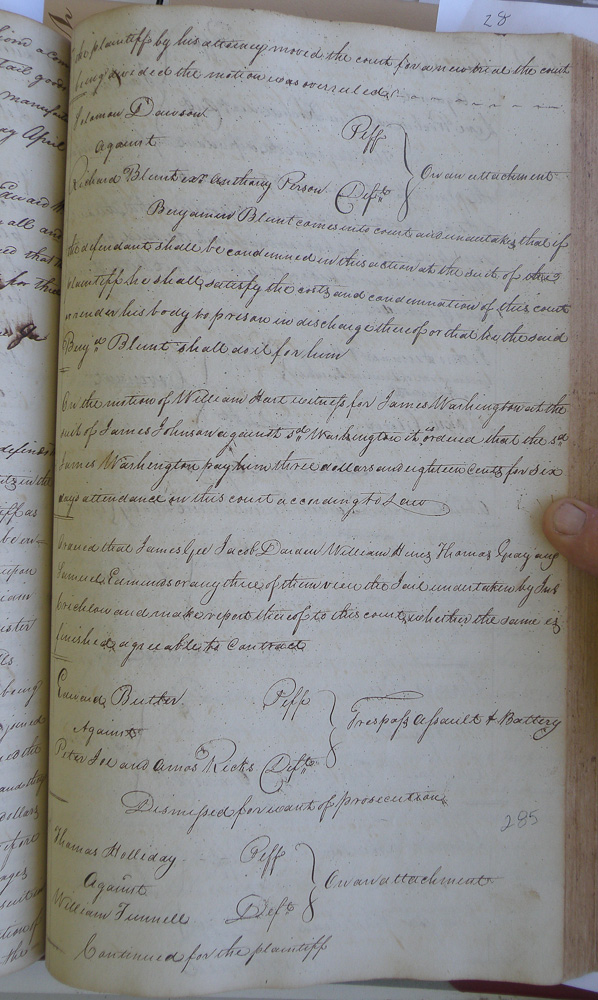 28
the plaintiff by his attorney moved the court for a new trial the court
being divided the motion was overruled
Solomon Dawson Plff
Against On an attachment
Richard Blunt exr Anthony Person Defts
Benjamin Blunt comes into court and undertakes that if
the defendant shall be condemned in this action at the suit of the
plaintiff he shall satisfy the costs and condemnation of this court
or render his body to prison in discharge thereof or that he the said
Benjn Blunt shall do it for him
On the motion of William Hart witness for James Washington at the
suit of James Johnson against sd Washington it is ordered that the sd
James Washington pay him three dollars and eighteen Cents for Six
days attendance on this court according to Law
Ordered that James Gee Jacob Darden William Hines Thomas Gray and
Samuel Edmunds or any three of them view the Jail undertaken by
Crichlow and make report thereof to this court whether the same is
finished agreeable to Contract
Edward Butler Plff
Against Trespass Assault & Battery
Peter Joe and Amos Ricks Defts
Dismissed for want of prosecution
285
Thomas Holliday Plff
Against On an attachment
William Funnell Deft
Continued for the plaintiff